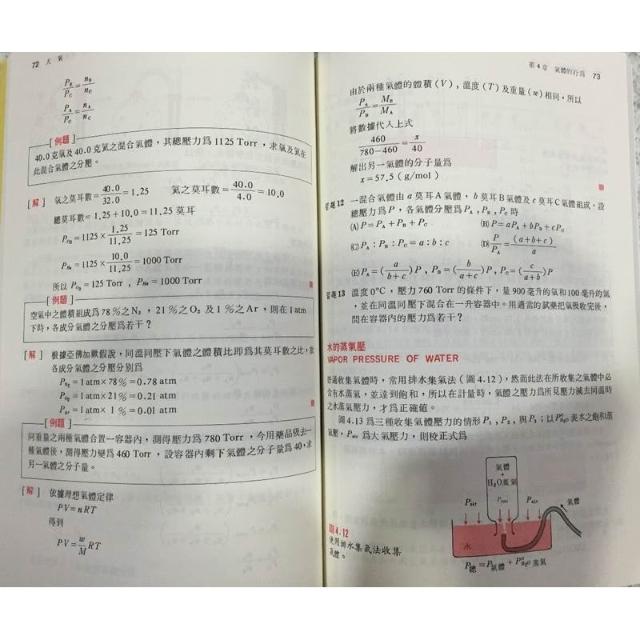 72 大氣
P_B/P_C = n_B/n_C
P_A/P_C = n_A/n_C
[例題]
40.0克氧及40.0克氦之混合氣體,其總壓力爲1125 Torr,求氧及氦在
此混合氣體之分壓。
[解] 氧之莫耳數=40.0/32.0=1.25 氦之莫耳數=40.0/4.0=10.0
總莫耳數=1.25+10.0=11.25莫耳
P_O₂=1125×1.25/11.25=125 Torr
P_He=1125×10.0/11.25=1000 Torr
所以 P_O₂=125 Torr,P_He=1000 Torr
[例題]
空氣中之體積組成爲78%之N₂,21%之O₂及1%之Ar,則在1atm
下時,各成分氣體之分壓爲若干?
[解] 根據亞佛加厥假說,同溫同壓下氣體之體積比即爲其莫耳數之比,故
各成分氣體之分壓分別爲
P_N₂=1atm×78%=0.78 atm
P_O₂=1atm×21%=0.21 atm
P_Ar=1atm×1%=0.01 atm
[例題]
同重量之兩種氣體合置一容器內,測得壓力爲780 Torr,今用藥品吸去一
種氣體後,測得壓力變爲460 Torr,設容器內剩下氣體之分子量爲40,求
另一氣體之分子量。
[解] 依據理想氣體定律
PV=nRT
得到
PV=w/M RT
第4章 氣體的行爲 73
由於兩種氣體的體積(V),溫度(T)及重量(w)相同,所以
P_A/P_B=M_B/M_A
將數據代入上式
460/780-460=x/40
解出另一氣體的分子量爲
x=57.5(g/mol)
習題12 一混合氣體由a莫耳A氣體,b莫耳B氣體及c莫耳C氣體組成,設
總壓力爲P,各氣體分壓爲P_A,P_B,P_C時
(A)P=P_A+P_B+P_C (B)P=aP_A+bP_B+cP_C
(C)P_A:P_B:P_C=a:b:c (D)P/P_A=(a+b+c)/a
(E)P_A=(a/b+c)P,P_B=(b/a+c)P,P_C=(c/a+b)P
習題13 溫度0°C,壓力760 Torr的條件下,量900毫升的氮和100毫升的氧
,並在同溫同壓下混合在一升容器中。用適當的試藥把氧吸收完後,
問在容器內的壓力爲若干?
水的蒸氣壓
VAPOR PRESSURE OF WATER
普通收集氣體時,常用排水集氣法(圖4.12),然而此法在所收集之氣體中必
含有水蒸氣,並達到飽和,所以在計時,氣體之壓力爲所見壓力減去同溫時
之水蒸氣壓力,才爲正確値。
圖4.13爲三種收集氣體壓力的情形P₁,P₂,與P₃;以P°_H₂O表水之飽和蒸
氣壓,P_air爲大氣壓力,則校正式爲
氣體
+
H₂O蒸氣
P_air
P_air
氣體
水
圖4.12
使用排水集氣法收集
氣體。
P_總=P_氣體+P°_H₂O蒸氣